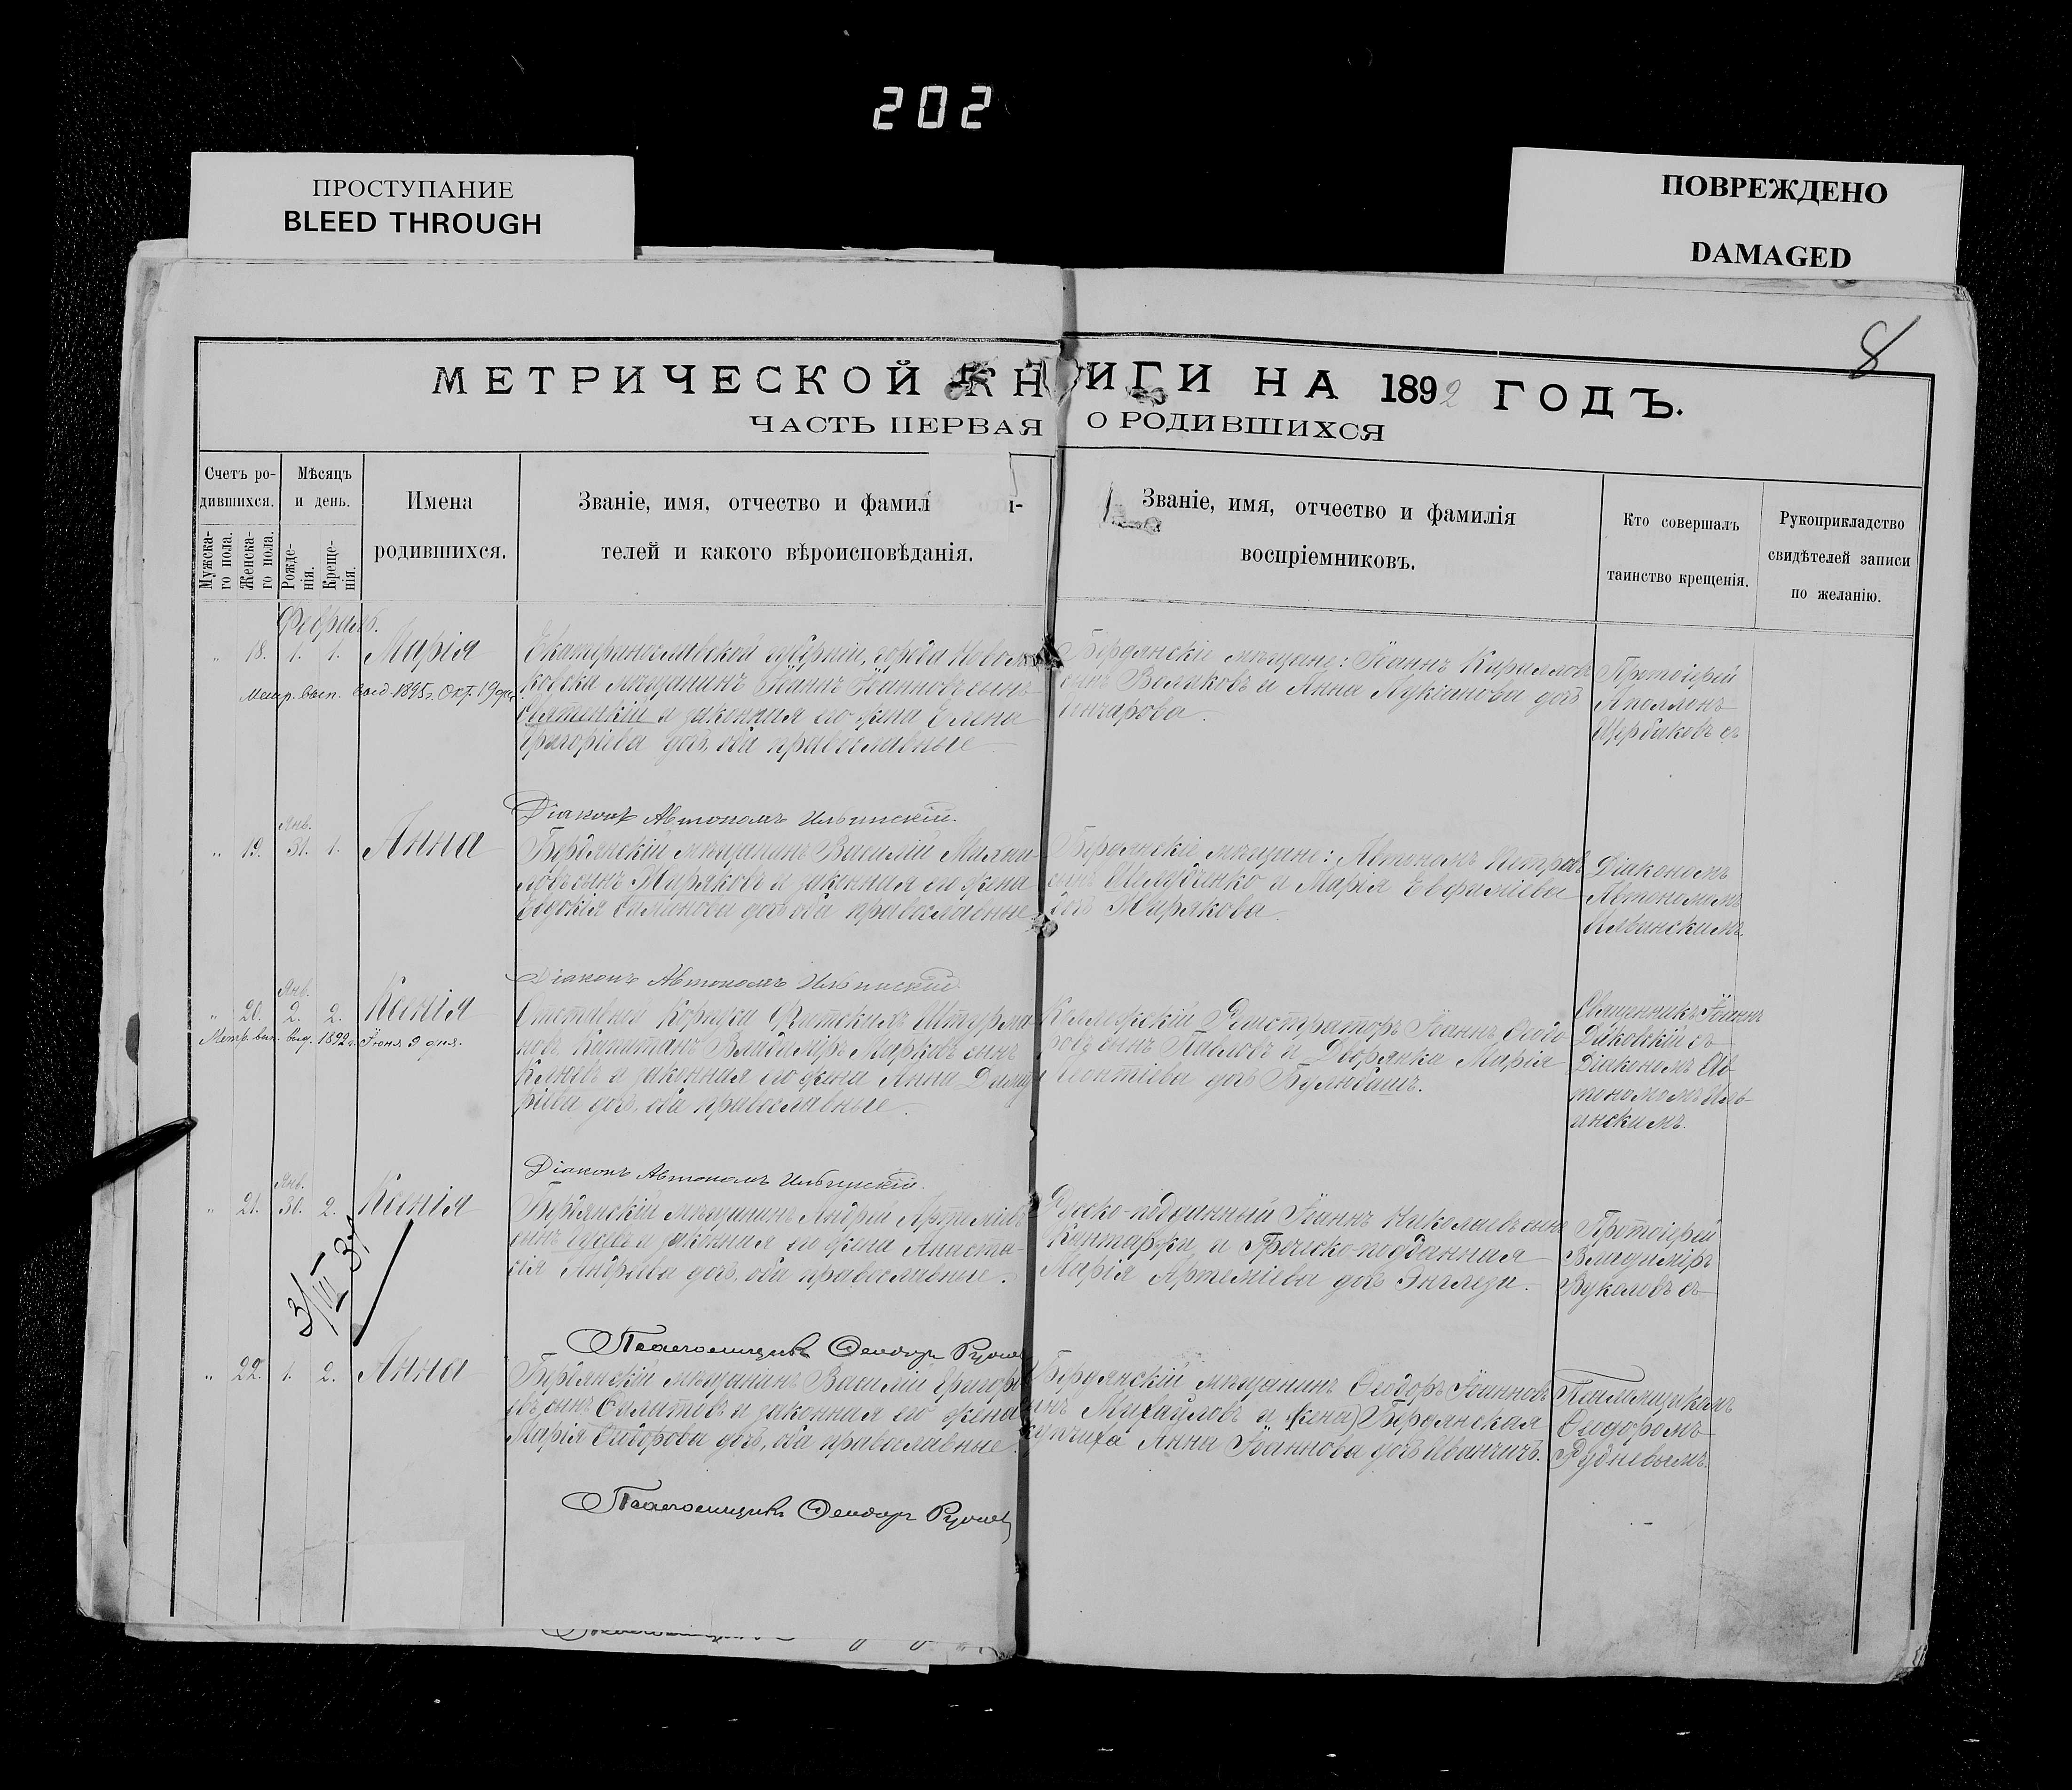 202
ПРОСТУПАНИЕ
BLEED THROUGH
ПОВРЕЖДЕНО
DAMAGED
8
МЕТРИЧЕСКОЙ КНИГИ НА 1892 ГОДЪ.
ЧАСТЬ ПЕРВАЯ О РОДИВШИХСЯ
Счетъ ро-
дившихся.
Мужска-
го пола.
Женска-
го пола.
Мѣсяцъ
и день.
Рожде-
нія.
Креще-
нія.
Имена
родившихся.
Званіе, имя, отчество и фамил і-
телей и какого вѣроисповѣданія.
Званіе, имя, отчество и фамилія
воспріемниковъ.
Кто совершалъ
таинство крещенія.
Рукоприкладство
свидѣтелей записи
по желанію.
Февраль.
" 18. 1. 1. Марія
Метр. вып. выд. 1895 г. Окт. 19 дня
Екатеринославской губерніи, города Новомо-
ковска мѣщанинъ Іоаннъ Іоанновъ сынъ
и законная его жена Елена
Григоріева дочь, оба православные
Бердянскіе мѣщане: Іоаннъ Кирилловъ
сынъ Волаковъ и Анна Лукіанова дочь
Гончарова.
Протоіерей
Аполлонъ
Щербаковъ съ
Діаконъ Автономъ Ильинскій.
Янв.
" 19. 31. 1. Анна
Бердянскій мѣщанинъ Василій Михаи-
ловъ сынъ Жиряковъ и законная его жена
Евдокія Симонова дочь оба православные
Бердянскіе мѣщане: Автономъ Петровъ
сынъ и Марія Евфиміева
дочь Жирякова.
Діакономъ
Автономомъ
Ильинскимъ.
Діаконъ Автономъ Ильинскій.
Янв.
" 20. 2. 2. Ксенія
Метр. вып. выд. 1892 г. Іюня 9 дня.
Отставной Корпуса Флотскихъ Штурма-
новъ Капитанъ Владиміръ Марковъ сынъ
и законная его жена Анна Димит
ріева дочь, оба православные.
Коллежскій Регистраторъ Іоаннъ Ѳеодо
ровъ сынъ Павловъ и Дворянка Марія
Леонтіева дочь
Священникъ Іоаннъ
Диковскій съ
Діакономъ Ав-
тономомъ Иль-
инскимъ.
Діаконъ Автономъ Ильинскій.
Янв.
" 21. 30. 2. Ксенія
Бердянскій мѣщанинъ Андрей Артеміевъ
сынъ и законная его жена Анаста-
сія Андреева дочь, оба православные.
Русско-подданный Іоаннъ Николаевъ сынъ
и Греческо-подданная
Марія Артеміева дочь
Протоіерей
Владиміръ
Вуколовъ съ
3/III 37
Псаломщикъ Ѳеодоръ Рудневъ
" 22. 1. 2. Анна
Бердянскій мѣщанинъ Василій Григорі
евъ сынъ и законная его жена
Марія Сидорова дочь, оба православные.
Бердянскій мѣщанинъ Ѳеодоръ Іоанновъ
сынъ Михайловъ и (жена) Бердянская
купчиха Анна Іоаннова дочь Иванчичъ.
Псаломщикомъ
Ѳеодоромъ
Рудневымъ.
Псаломщикъ Ѳеодоръ Рудневъ